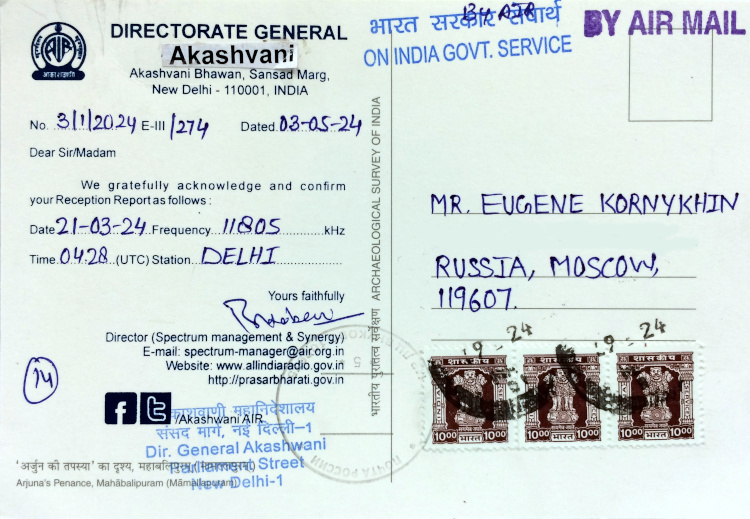 AIR
DIRECTORATE GENERAL
Akashvani
Akashvani Bhawan, Sansad Marg,
New Delhi - 110001, INDIA
No. 3/1/2024 E-III /274 Dated. 03-05-24
Dear Sir/Madam
We gratefully acknowledge and confirm
your Reception Report as follows :
Date 21-03-24 Frequency 11805 kHz
Time 0428 (UTC) Station DELHI
Yours faithfully
Director (Spectrum management & Synergy)
E-mail: spectrum-manager@air.org.in
Website: www.allindiaradio.gov.in
http://prasarbharati.gov.in
14
/Akashvani AIR
आकाशवाणी महानिदेशालय
संसद मार्ग, नई दिल्ली-1
Dir. General Akashwani
Parliament Street
New Delhi-1
'अर्जुन की तपस्या' का दृश्य, महाबलिपुरम्
Arjuna's Penance, Mahābalipuram (Māmallapuram)
भारतीय पुरातत्व सर्वेक्षण ARCHAEOLOGICAL SURVEY OF INDIA
भारत सरकार सेवार्थ
ON INDIA GOVT. SERVICE
BY AIR MAIL
MR. EUGENE KORNYKHIN
RUSSIA, MOSCOW,
119607.
9 - 24
9 - 24
शासकीय शासकीय शासकीय
1000 1000 1000 1000 1000 1000
भारत भारत भारत
ПОЧТА РОССИИ